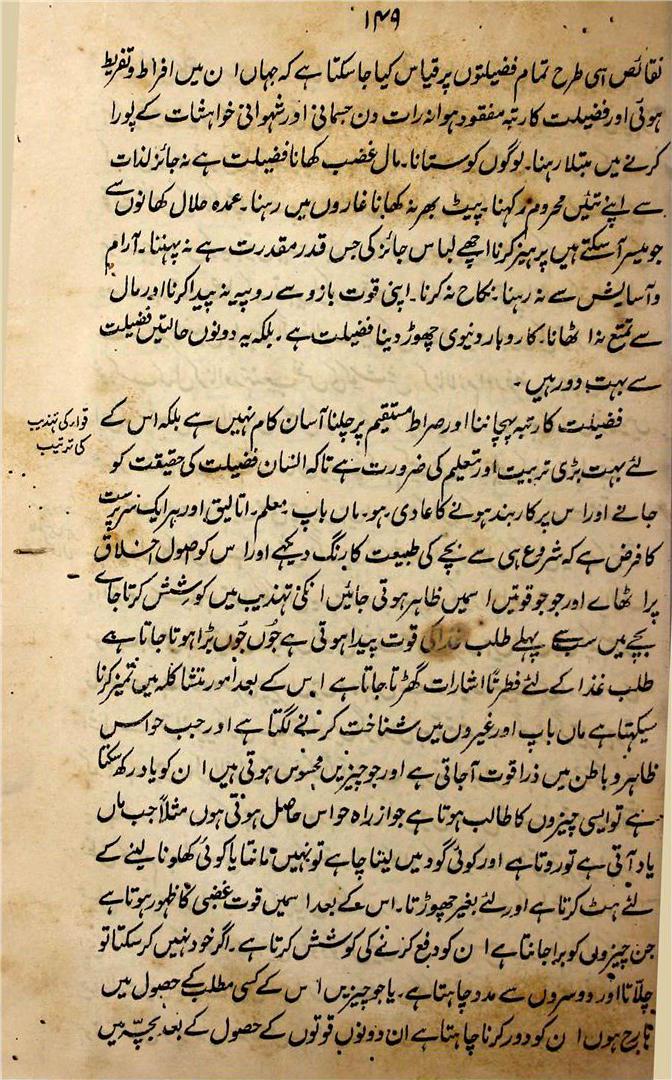 ۱۴۹
نقائص ہی طرح تمام فضیلتوں پر قیاس کیا جا سکتا ہے کہ جہاں ان میں افراط و تفریط
ہوئی اور فضیلت کا رتبہ مفقود ہوا نہ رات دن جسمانی اور شہوانی خواہشات کے پورا
کرنے میں مبتلا رہنا۔ لوگوں کو ستانا۔ مال غضب کھانا فضیلت ہے نہ جائز لذات
سے اپنے تئیں محروم رکہنا۔ پیٹ بھر نہ کھانا غاروں میں رہنا۔ عمدہ حلال کھانوں سے
جو میسر آسکتے ہیں پرہیز کرنا اچھے لباس جائز کی جس قدر مقدرت ہے نہ پہننا۔ آرام
و آسایش سے نہ رہنا۔ نکاح نہ کرنا۔ اپنی قوت بازو سے روپیہ نہ پیدا کرنا اور مال
سے تمتع نہ اٹھانا۔ کاروبار دنیوی چھوڑ دینا فضیلت ہے۔ بلکہ یہ دونوں حالتیں فضیلت
سے بہت دور ہیں۔
فضیلت کا رتبہ پہچاننا اور صراط مستقیم پر چلنا آسان کام نہیں ہے بلکہ اس کے
قوار کی تہذیب
کی ترتیب
لئے بہت بڑی تربیت اور تعلیم کی ضرورت ہے تاکہ انسان فضیلت کی حقیقت کو
جانے اور اس پر کاربند ہونے کا عادی ہو۔ ماں باپ۔ معلم۔ اتالیق اور ہر ایک سرپرست
کا فرض ہے کہ شروع ہی سے بچے کی طبیعت کا رنگ دیکہے اور اس کو اصول اخلاق
پر اٹھاے اور جو جو قوتیں اسمیں ظاہر ہوتی جائیں انکی تہذیب میں کوشش کرتا جاے
بچے میں سب سے پہلے طلب غذا کی قوت پیدا ہوتی ہے جوں جوں بڑا ہوتا جاتا ہے
طلب غذا کے لئے فطرتاً اشارات گھڑتا جاتا ہے اس کے بعد امور متشاکلہ میں تمیز کرنا
سیکہتا ہے ماں باپ اور غیروں میں شناخت کرنے لگتا ہے اور جب حواس
ظاہر و باطن میں ذرا قوت آجاتی ہے اور جو چیزیں محسوس ہوتی ہیں ان کو یاد رکھ سکتا
ہے تو ایسی چیزوں کا طالب ہوتا ہے جو از راہ حواس حاصل ہوتی ہوں مثلاً جب ماں
یاد آتی ہے تو روتا ہے اور کوئی گود میں لینا چاہے تو نہیں مانتا یا کوئی کھلونا لینے کے
لئے ہٹ کرتا ہے اور لئے بغیر چھوڑتا۔ اس کے بعد اسمیں قوت غضبی کا ظہور ہوتا ہے
جن چیزوں کو برا جانتا ہے ان کو دفع کرنے کی کوشش کرتا ہے۔ اگر خود نہیں کرسکتا تو
چلاتا اور دوسروں سے مدد چاہتا ہے۔ یا جو چیزیں اس کے کسی مطلب کے حصول میں
ہارج ہوں ان کو دور کرنا چاہتا ہے ان دونوں قوتوں کے حصول کے بعد بچہ میں